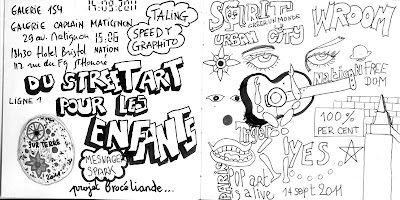 GALERIE 154 14.09.2011
GALERIE CAPLAIN MATIGNON
29 av. Matignon 15.06
18h30 Hotel Bristol NATION
112 rue du Fg St Honoré
TALING
SPEEDY
GRAPHITO
DU STREET ART
LIGNE 1 POUR LES
ENFANTS
SUR TERRE
2011
MESNAGER
SPARK
projet Brocéliande...
SPIRIT
URBAN CITY
WROOM
Nation FREE
DOM
100%
PER CENT
TRUST
YES...
PARIS
POP art
is alive
14 sept 2011